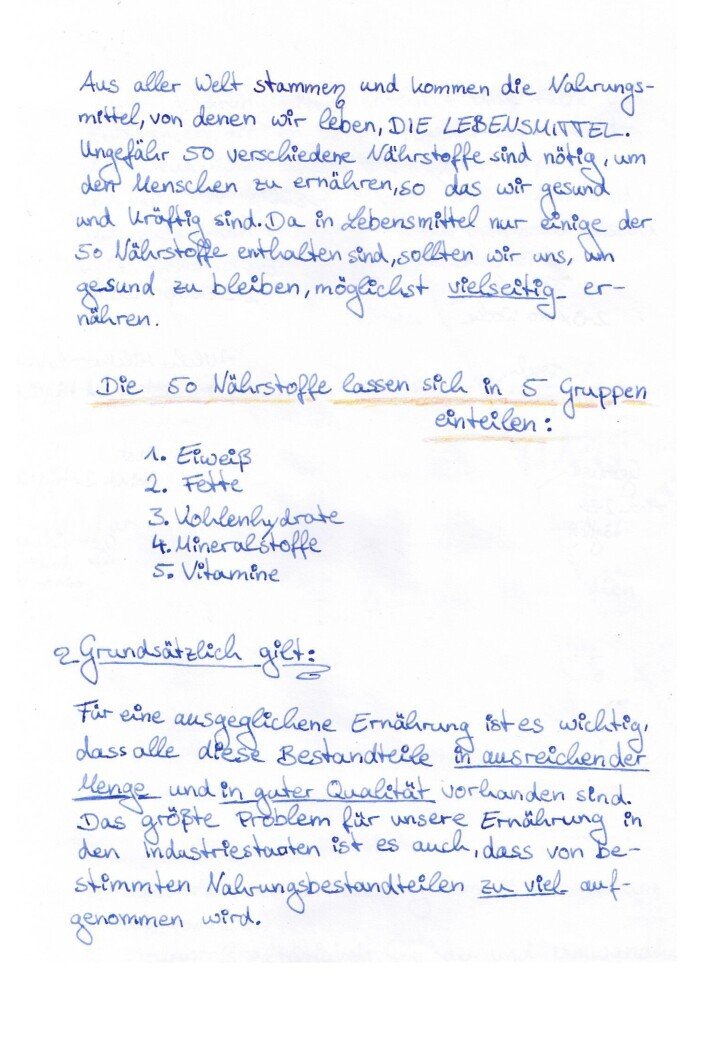 Aus aller Welt stammen und kommen die Nahrungs-
mittel, von denen wir leben, DIE LEBENSMITTEL.
Ungefähr 50 verschiedene Nährstoffe sind nötig, um
den Menschen zu ernähren, so das wir gesund
und kräftig sind. Da in Lebensmittel nur einige der
50 Nährstoffe enthalten sind, sollten wir uns, um
gesund zu bleiben, möglichst vielseitig er-
nähren.
Die 50 Nährstoffe lassen sich in 5 Gruppen
einteilen:
1. Eiweiß
2. Fette
3. Kohlenhydrate
4. Mineralstoffe
5. Vitamine
Grundsätzlich gilt:
Für eine ausgeglichene Ernährung ist es wichtig,
dass alle diese Bestandteile in ausreichender
Menge und in guter Qualität vorhanden sind.
Das größte Problem für unsere Ernährung in
den Industriestaaten ist es auch, dass von be-
stimmten Nahrungsbestandteilen zu viel auf-
genommen wird.